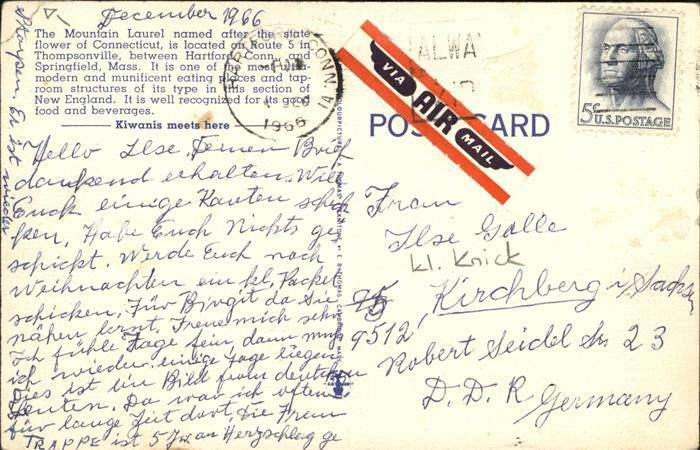 December 1966
The Mountain Laurel named after the state
flower of Connecticut, is located on Route 5 in
Thompsonville, between Hartford, Conn. and
Springfield, Mass. It is one of the most
modern and munificent eating places and tap-
room structures of its type in this section of
New England. It is well recognized for its good
food and beverages.
Kiwanis meets here
Hello Ilse, Deinen Brief
dankend erhalten. Will
Euch einige Karten
Habe Euch Nichts ge
schickt. Werde Euch nach
Weihnachten ein kl. Packet
schicken. Für Birgit da Sie
nähen lernt. Freue mich sehr
Ich fühle Tage fein, dann muß
ich wieder einige Tage liegen
Dies ist ein Bild from deutschen
Leuten. Da war ich öfters
für lange Zeit dort, die Frau
TRAPPE ist 5 Jan. an Herzschlag ge
Er ist wieder
CONN.
1966
VIA
AIR
MAIL
5¢ U.S. POSTAGE
POST CARD
Frau
Ilse Galle
kl. Knick
Kirchberg i/Sachsen
9512
Robert Seidel Str 23
D. D. R
Germany